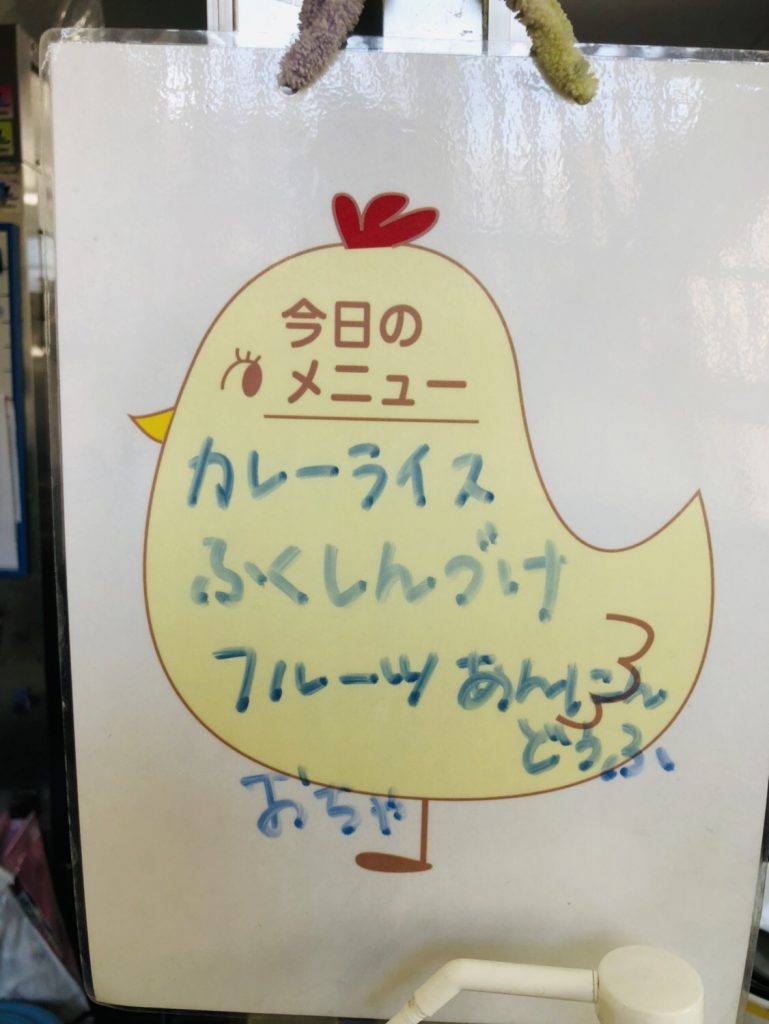 今日の
メニュー
カレーライス
ふくしんづけ
フルーツ あんにん
どうふ
おちゃ